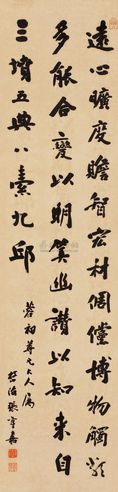 遠心曠度瞻智宏材倜儻博物觸類
多能合變以明筭幽讚以知來自
三墳五典八索九邱
蓉初尊兄大人屬